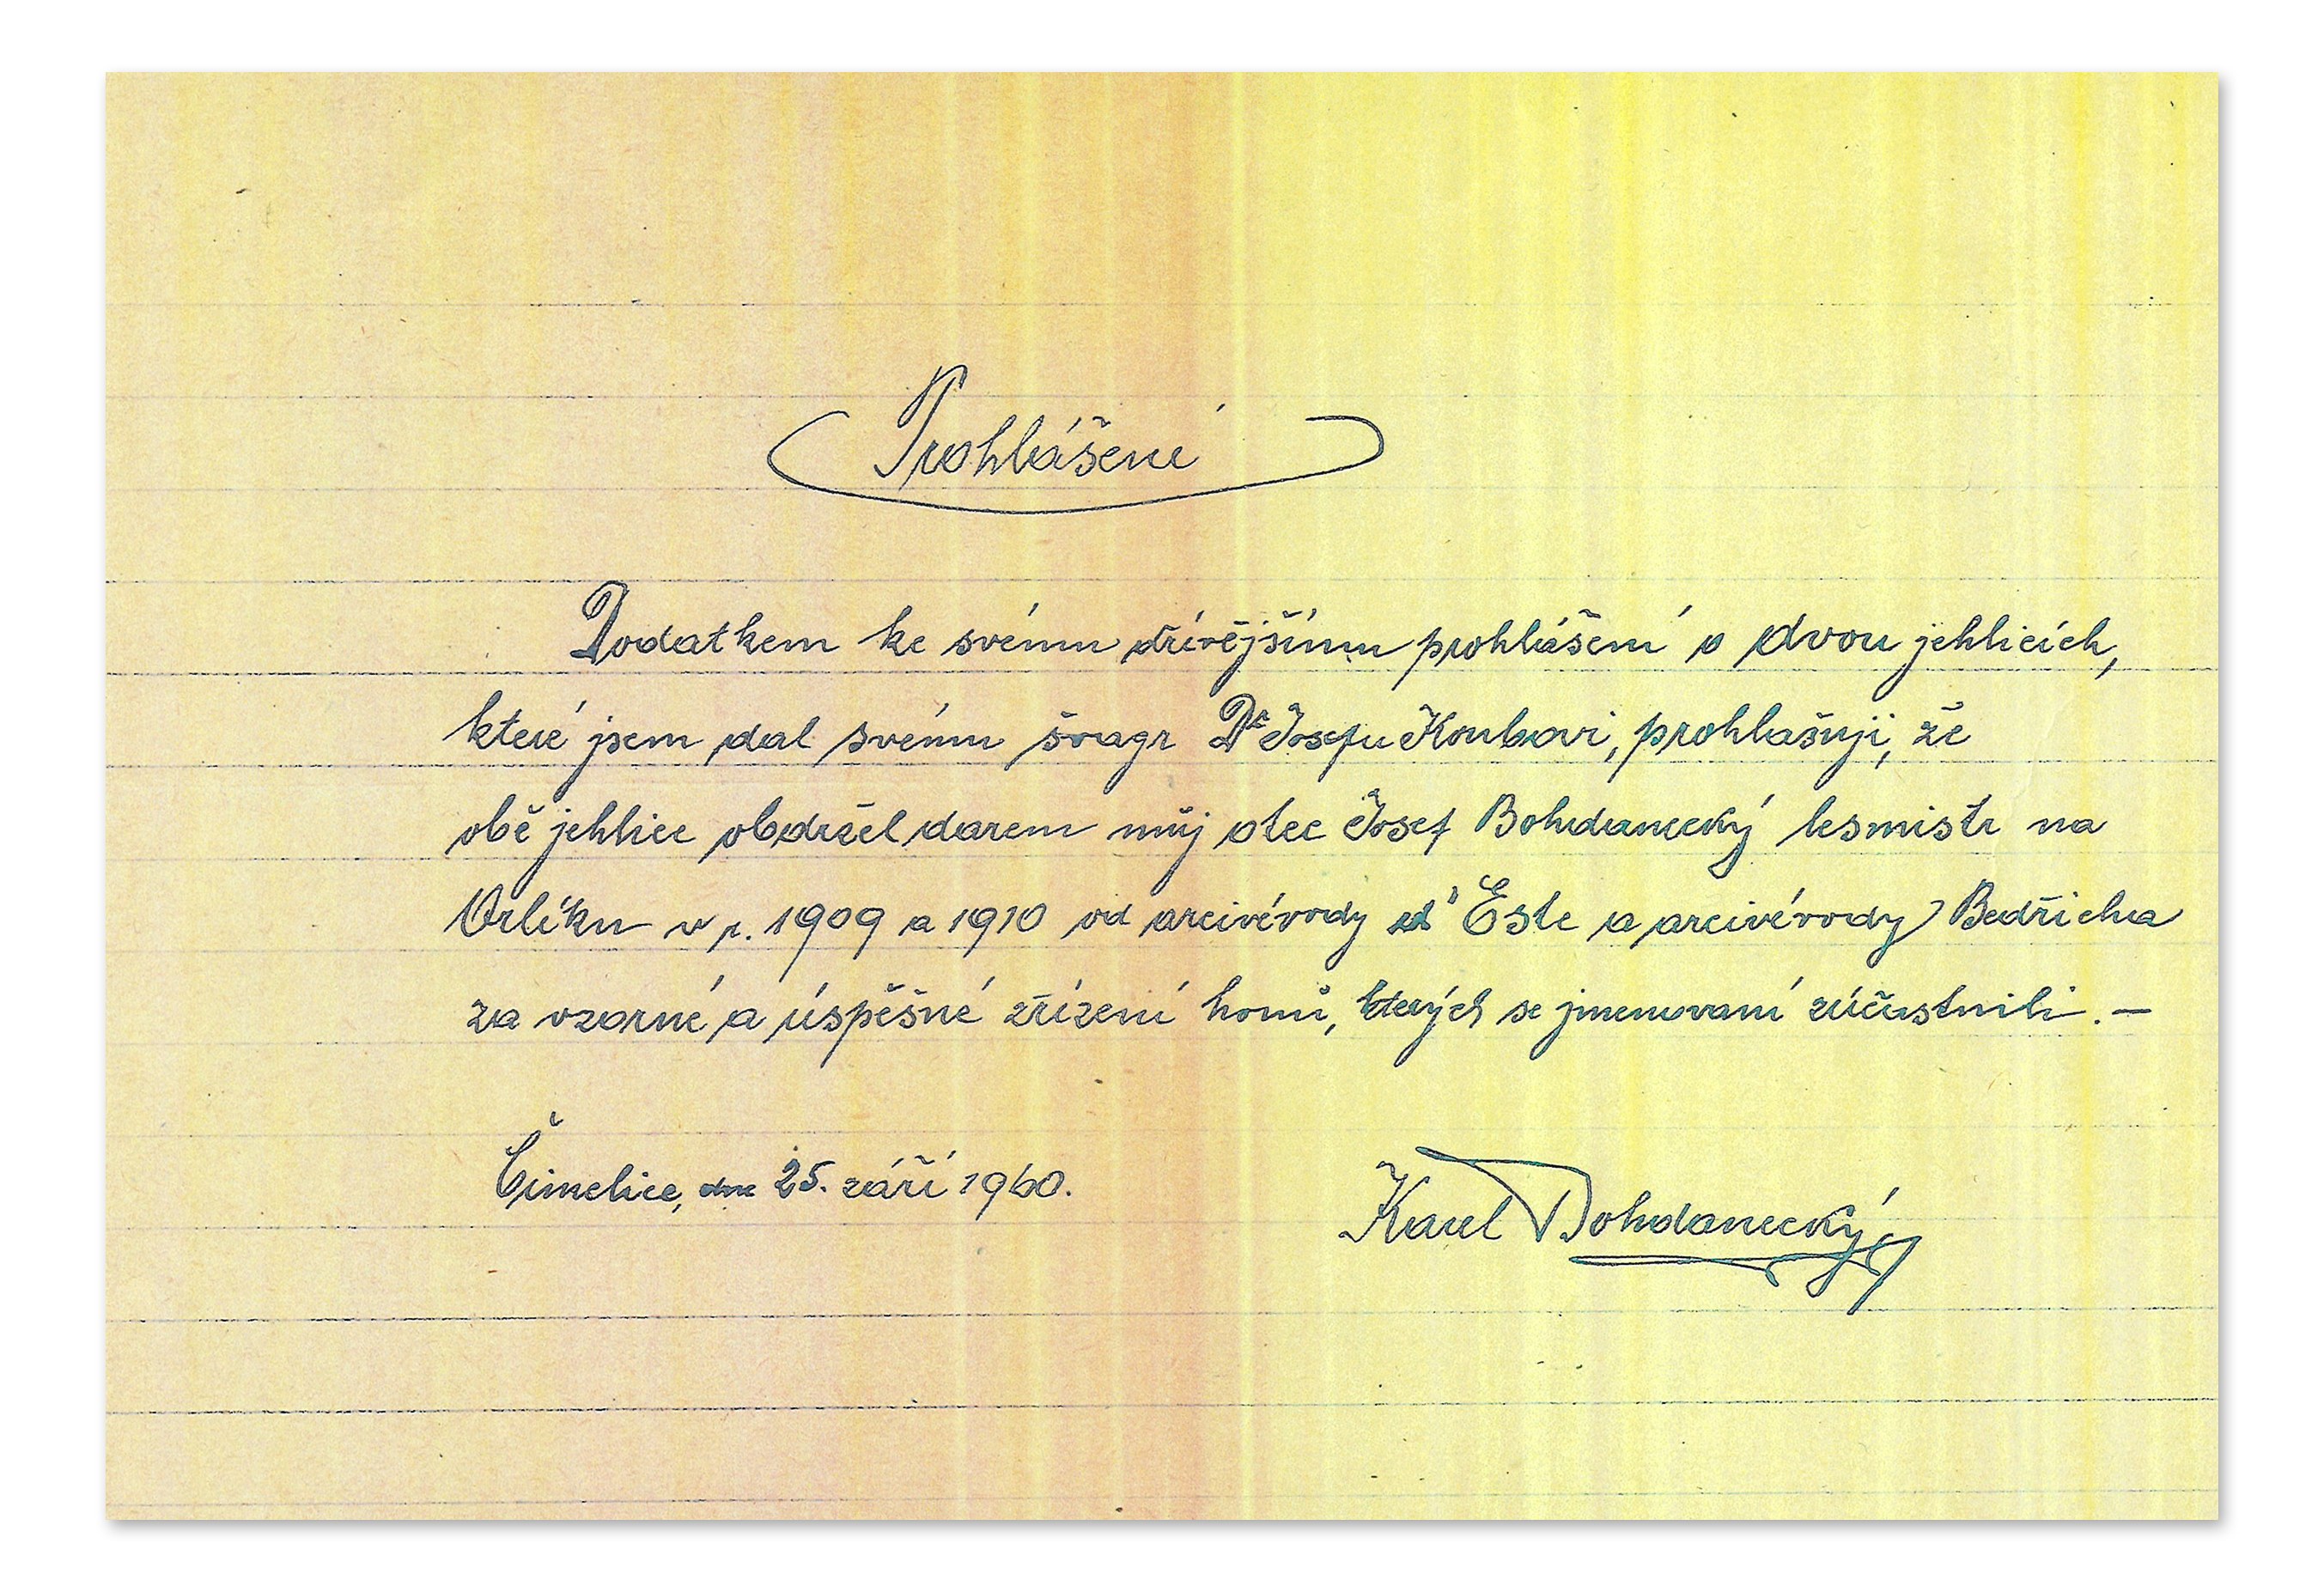 Prohlášení
Dodatkem ke svému dřívějšímu prohlášení o dvou jehlicích,
které jsem dal svému švagr Dr Josefu Koubovi, prohlašuji, že
obě jehlice obdržel darem můj otec Josef Bohdanecký lesmistr na
Orlíku v r. 1909 a 1910 od arcivévody d' Este a arcivévody Bedřicha
za vzorné a úspěšné zřízení honů, kterých se jmenovaní zúčastnili. —
Čimelice, dne 25. září 1960.
Karel Bohdanecký